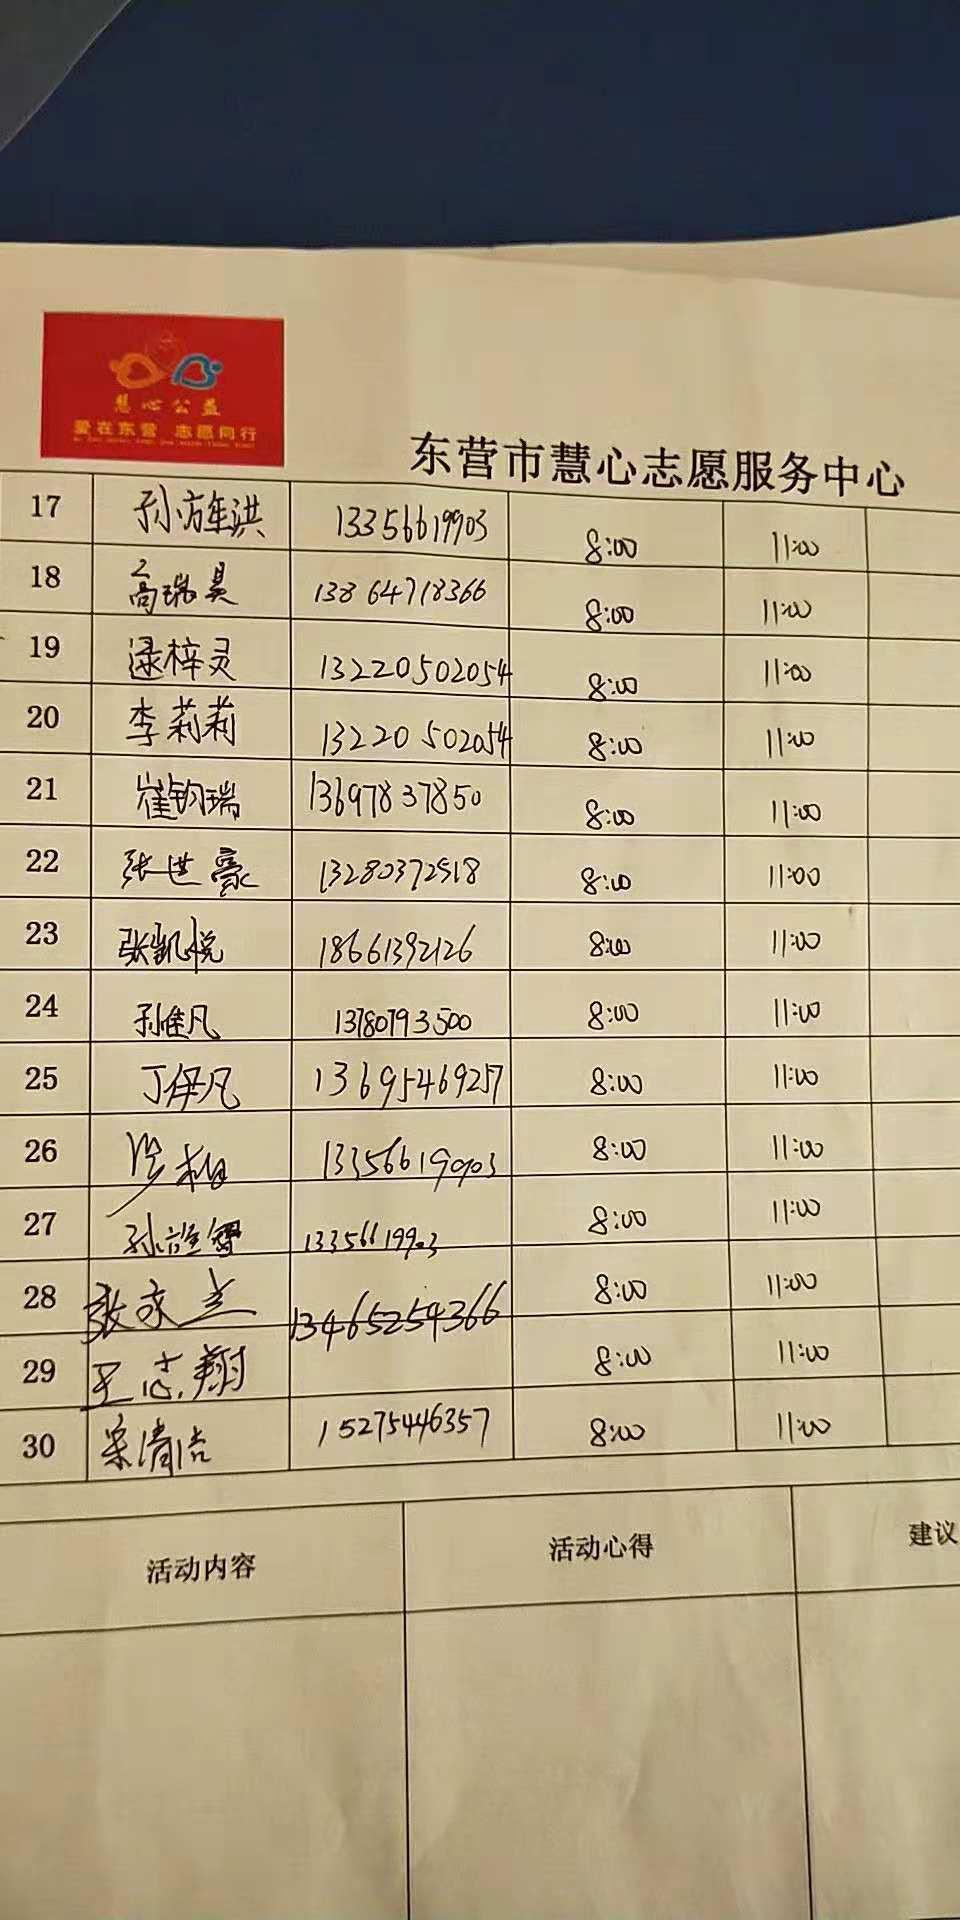 慧心公益
爱在东营 志愿同行
东营市慧心志愿服务中心
17 13356619903 8:00 11:00
18 高瑞昊 13864718366 8:00 11:00
19 逯梓灵 13220502054 8:00 11:00
20 李莉莉 13220502054 8:00 11:00
21 崔钧瑞 13697837850 8:00 11:00
22 张世豪 13280372518 8:00 11:00
23 张凯悦 18661392126 8:00 11:00
24 孙佳凡 13780793500 8:00 11:00
25 丁伊凡 13695469257 8:00 11:00
26 13356619903 8:00 11:00
27 13356619903 8:00 11:00
28 13465254366 8:00 11:00
29 王志翔 8:00 11:00
30 宋清浩 15275446357 8:00 11:00
活动内容 活动心得 建议